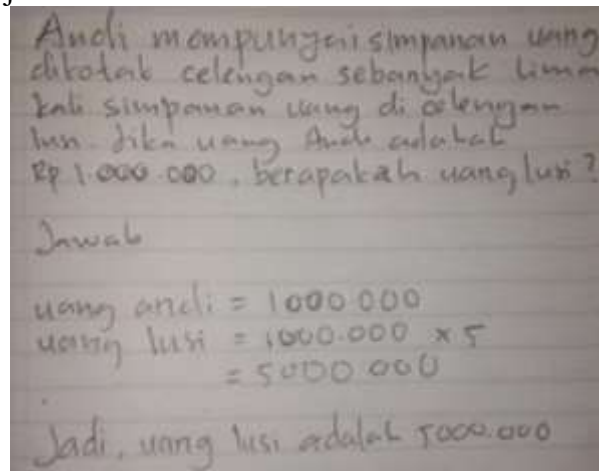 Andi mempunyai simpanan uang
dikotak celengan sebanyak lima
kali simpanan uang di celengan
lusi. Jika uang Andi adalah
Rp 1.000.000, berapakah uang lusi?
Jawab
uang andi = 1000 000
uang lusi = 1000.000 x 5
= 5000 000
Jadi, uang lusi adalah 5000.000